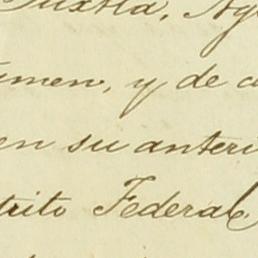 Tuxtla, Ag
men, y de c
en su anteri
trito Federal